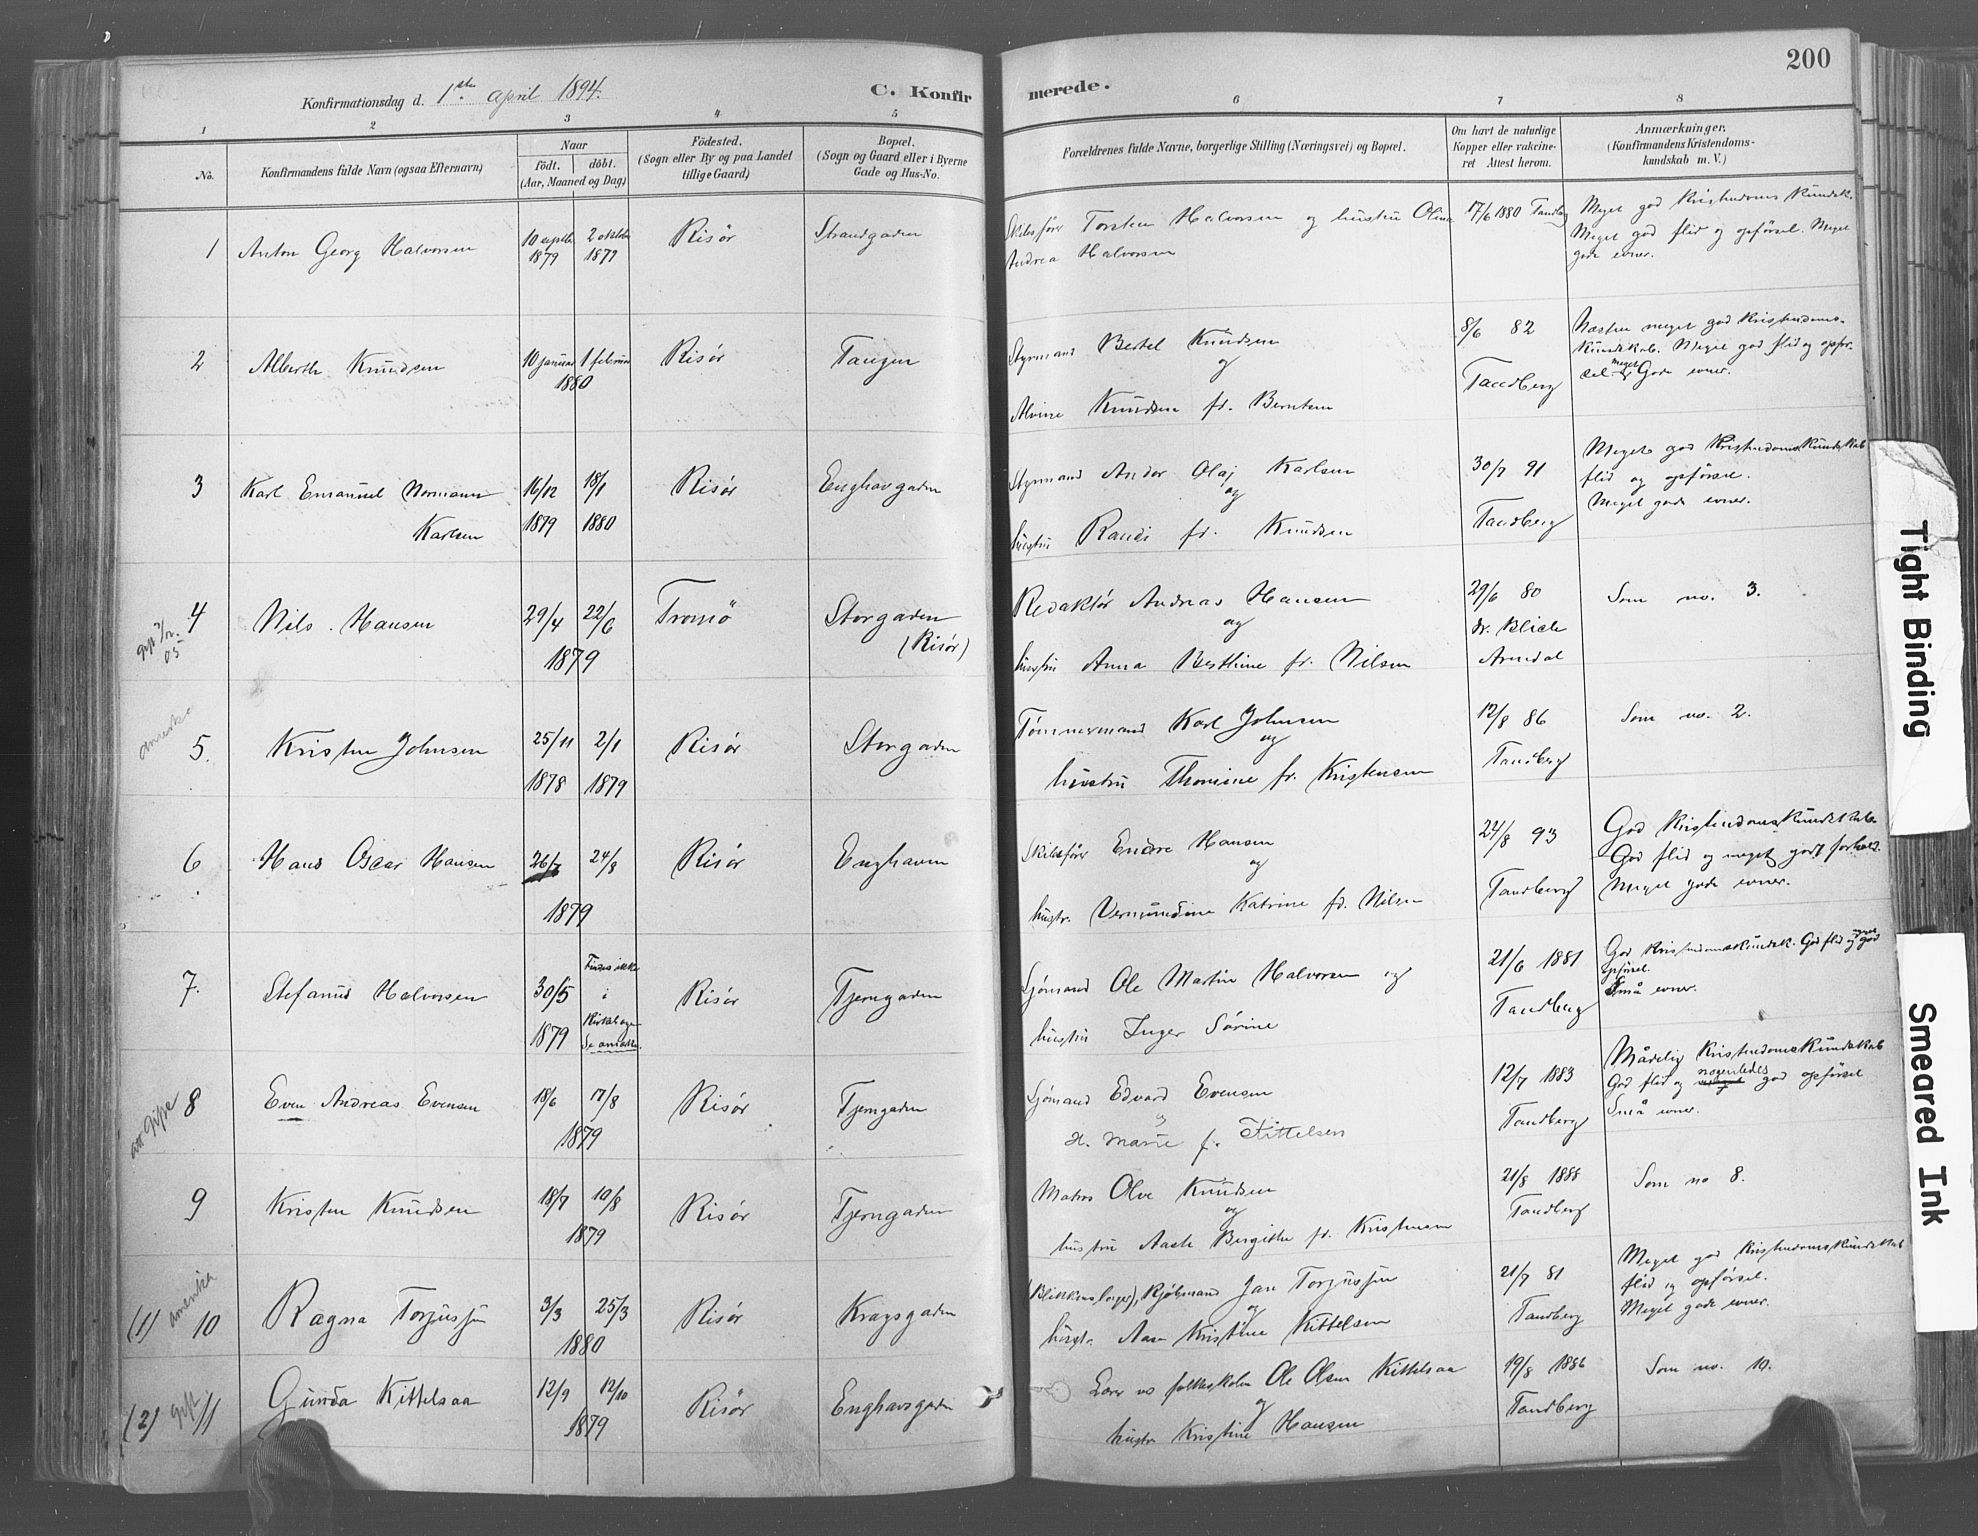 200
Konfirmationsdag d. 1ste April 1894.
C. Konfirmerede.
1 2 3 4 5 6 7 8
No.
Konfirmandens fulde Navn (ogsaa Efternavn)
Naar
født. døbt.
(Aar, Maaned og Dag)
Fødested.
(Sogn eller By og paa Landet
tillige Gaard)
Bopæl.
(Sogn og Gaard eller i Byerne
Gade og Hus-No.
Forældrenes fulde Navne, borgerlige Stilling (Næringsvei) og Bopæl.
Om havt de naturlige
Kopper eller vakcine-
ret Attest herom.
Anmærkninger.
(Konfirmandens Kristendoms-
kundskab m. V.)
1 Anton Georg Halvorsen
10 septbr 1879
2 oktbr 1879
Risør
Strandgaden
Skibsfører Torsten Halvorsen og hustru Olina
Andrea Halvorsen
17/6 1880 Tandberg
Meget god Kristendoms Kundsk.
Meget god flid og opførsel. Meget
gode evner.
2 Alberth Knudsen
10 januar 1 februar
1880
Risør
Tangen
Styrmand Bertel Knudsen
og
Alvine Knudsen fd. Berntsen
8/6 82
Tandberg
Næsten meget god Kristendoms-
kundskab. Meget god flid og opfør-
sel. meget Gode evner.
3 Karl Emanuel Normann
Karlsen
16/12 1879
18/1 1880
Risør
Enghavgaden
Styrmand Andor Olaj Karlsen
og
hustru Randi fd. Knudsen
30/7 91
Tandberg
Meget god Kristendoms Kundskab
flid og opførsel.
Meget gode evner.
gift 05
4 Nils Hansen
29/4 22/6
1879
Tromø
Storgaden
(Risør)
Redaktør Andreas Hansen
og
hustru Anna Berthine fd. Nilsen
29/6 80
dr. Blich
Arendal
Som no. 3.
5. Kristen Johnsen
25/11 1878
2/1 1879
Risør
Storgaden
Tømmermand Karl Johnsen
og
hustru Thomine fd. Kristensen
12/8 86
Tandberg
Som no. 2.
6 Hans Oscar Hansen
26/7 24/8
1879
Risør
Enghaven
Skibsfører Endre Hansen
og
hustr. Vermundine Katrine fd. Nilsen
24/8 93
Tandberg
God Kristendoms Kundskab
God flid og meget godt forhold.
Meget gode evner.
7. Stefanus Halvorsen
30/5 1879
Findes ikke
i
Kirkebogen
Risør
Tjerngaden
Sjømand Ole Martin Halvorsen og
hustru Inger Sørine
21/6 1881
Tandberg
God Kristendomskundsk. God flid og god
opførsel.
Små evner.
8 Even Andreas Evensen
18/6 17/8
1879
Risør
Tjerngaden
Sjømand Edvard Evensen
og
H. Marie f. Kittelsen
12/7 1883
Tandberg
Mådelig Kristendoms Kundskab
God flid og nogenledes god opførsel
Små evner.
9 Kristen Knudsen
18/7 10/8
1879
Risør
Tjerngaden
Matros Olve Knudsen
og
hustru Aaste Bergithe fd. Kristensen
21/8 1888
Tandberg
Som no 8.
(1) Amerika
10 Ragna Torjussen
3/3 25/3
1880
Risør
Kragsgaden
(Blikkenslager), Kjøbmand Jan Torjussen
og
hustr. Aase Kristine Kittelsen
21/7 81
Tandberg
Meget god Kristendomskundskab
flid og opførsel.
Meget gode evner.
(2) gift
11 Gunda Kittelsaa
12/9 12/10
1879
Risør
Enghavsgaden
Lærer vs folkeskolen Ole Olsen Kittelsaa
og
hustr Kristine Hansen
19/8 1886
Tandberg
Som no. 10.
Tight Binding
Smeared Ink